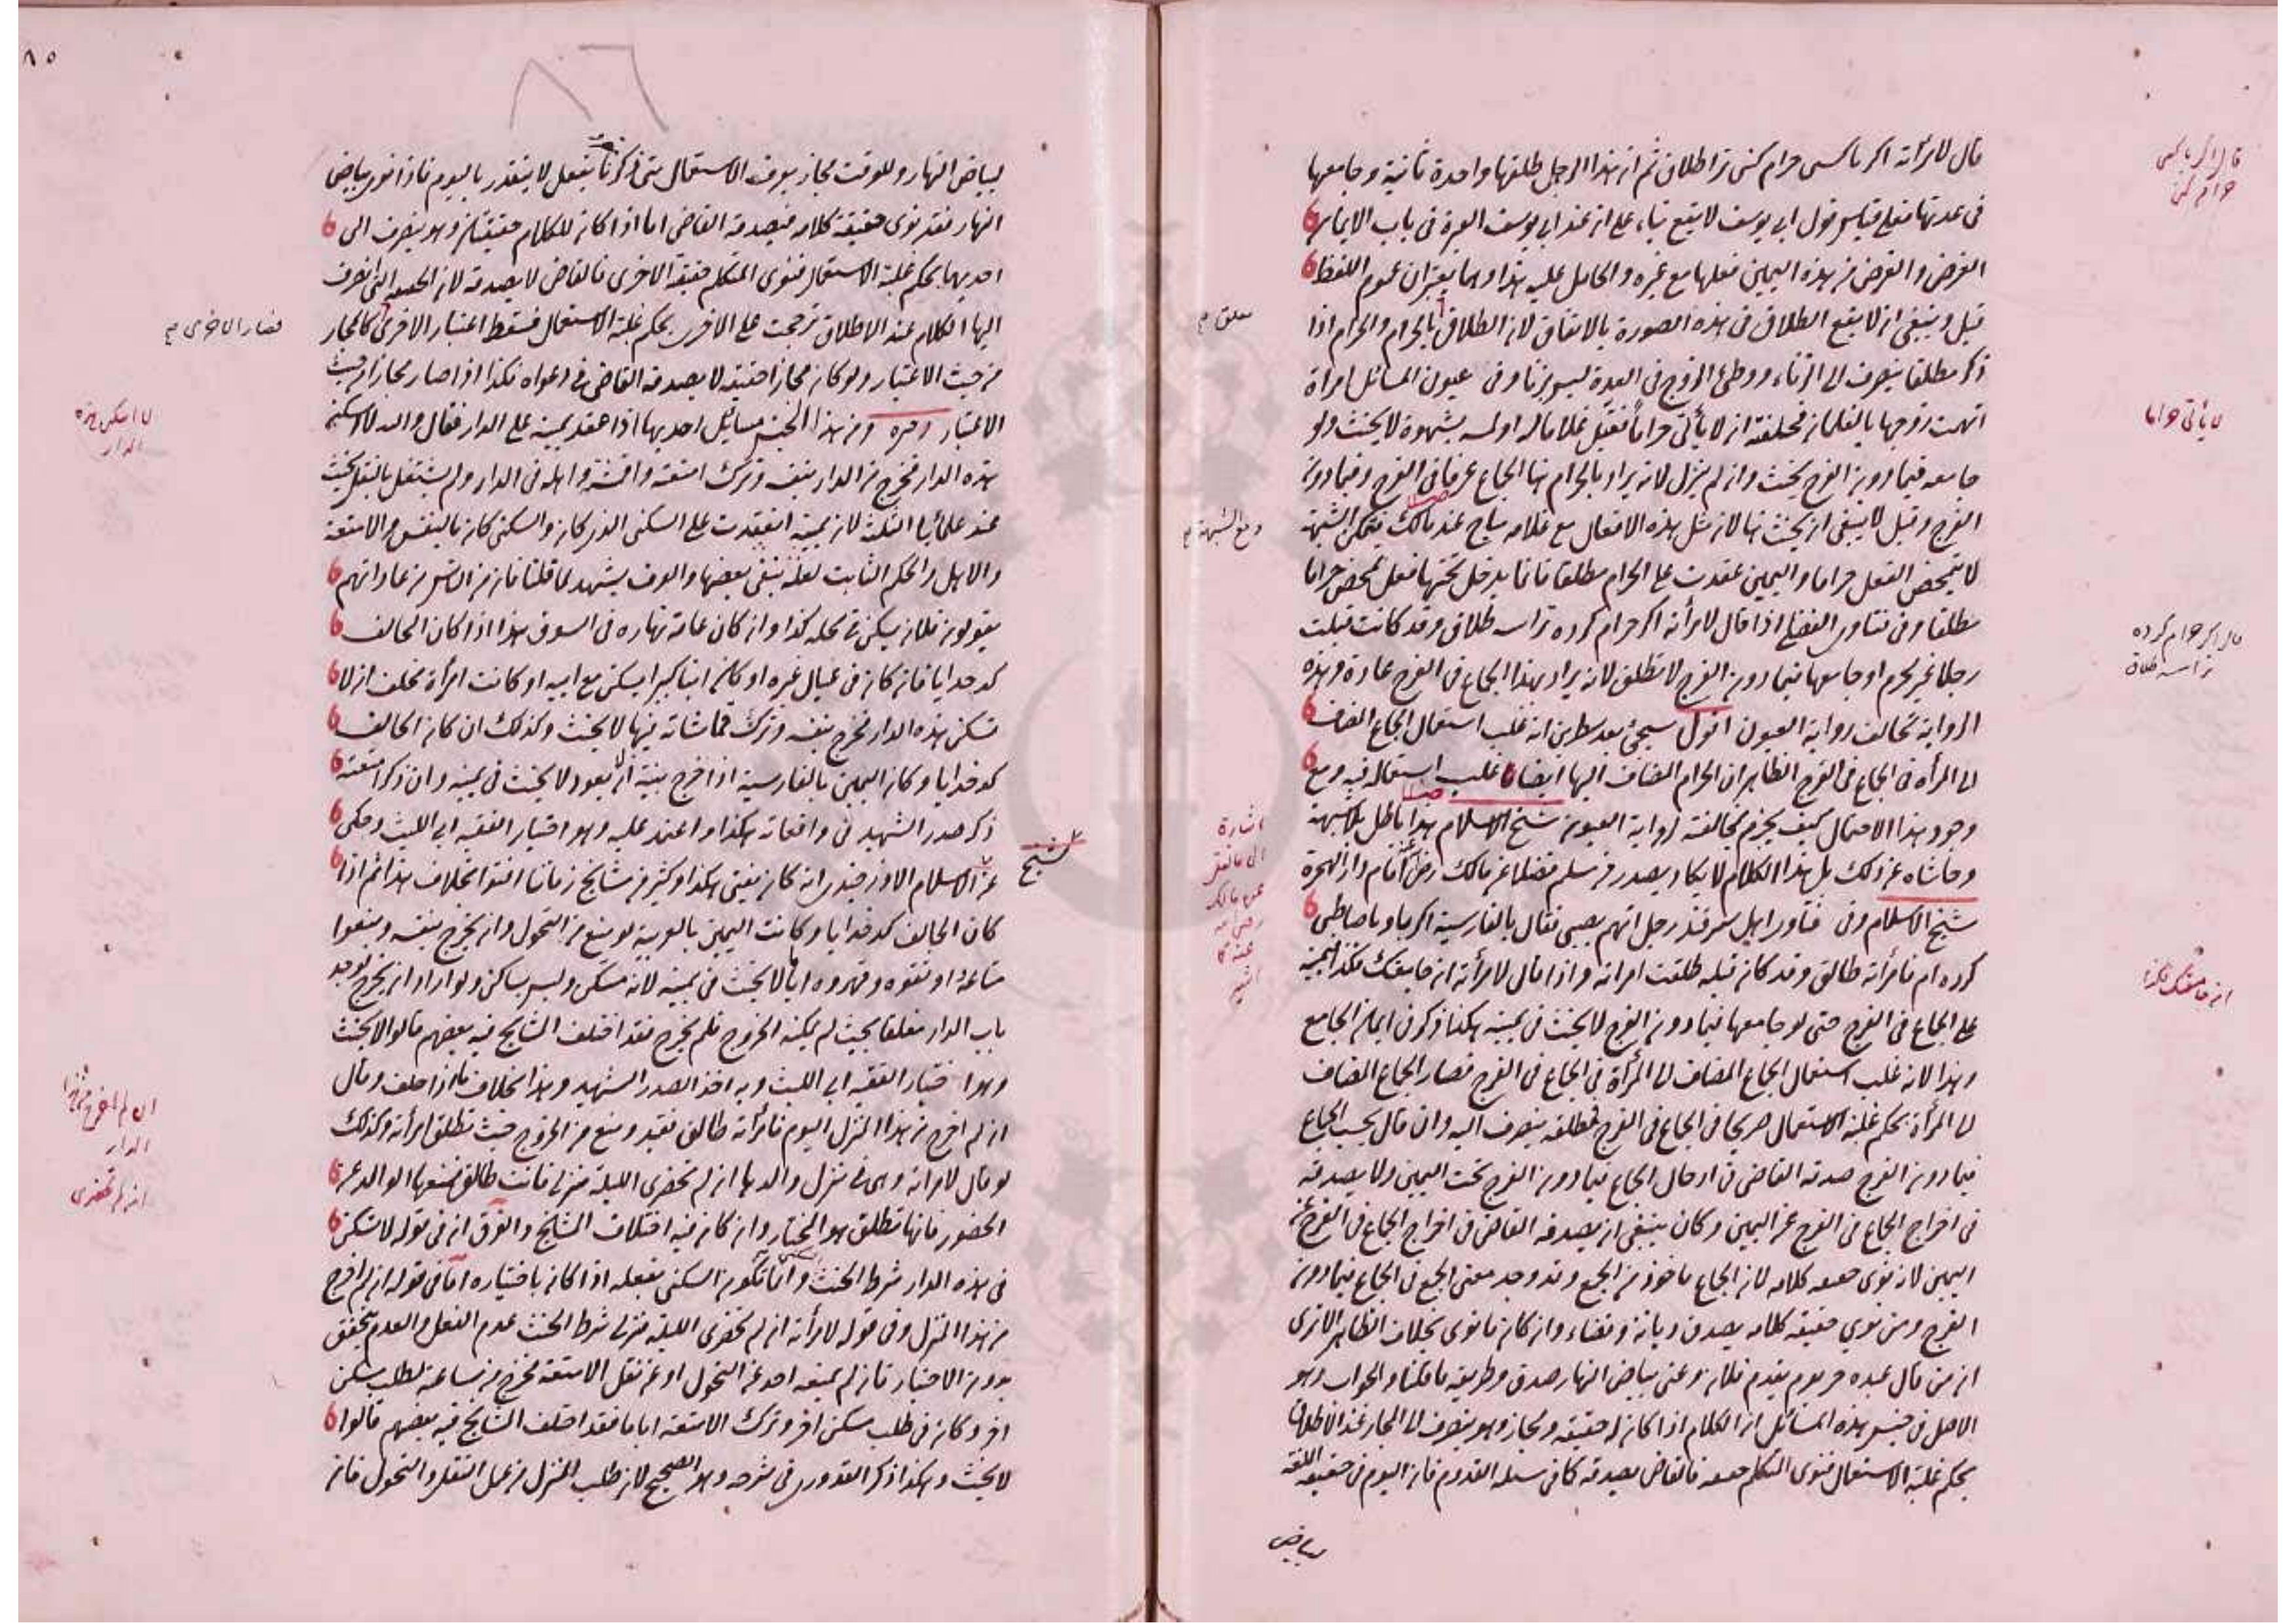 قال لامرأته اكر باكسى حرام كنى ترا طلاق ثم ان هذا الرجل طلقها واحدة ثانية وجامعها
فى عدتها فعلى قياس قول ابى يوسف لا يقع بناء على ان عند ابى يوسف العبرة فى باب الايمان
الغرض والغرض من هذه اليمين فعلها مع غيره والحامل عليه هذا وهما يعتبران عموم اللفظ
قيل وينبغى ان لا يقع الطلاق فى هذه الصورة بالاتفاق لان الطلاق بالحرام والحرام اذا
ذكر مطلقا ينصرف الى الزناء ووطئ الزوج فى العدة ليس بزنا وفى عيون المسائل امرأة
اتهمت زوجها بالغلمان فحلفته ان لا يأتى حراما فقبل غلاما له او لمسه بشهوة لا يحنث ولو
جامعه فيما دون الفرج يحنث وان لم ينزل لانه يراد بالحرام هنا الجماع عرفا فى الفرج وفيما دون
الفرج وقيل لا ينبغى ان يحنث هنا لان مثل هذه الافعال مع غلامه مباح عند مالك فتمكن الشبهة
لا يتمحض الفعل حراما واليمين عقدت على الحرام مطلقا فانما يدخل تحتها فعل تمحض حراما
مطلقا وفى فتاوى الفضلى اذا قال لامرأته اكر حرام كرده تراسه طلاق وقد كانت قبلت
رجلا غير محرم او جامعها فيما دون الفرج لا تطلق لانه يراد بهذا الجماع فى الفرج عادة وهذه
الرواية تخالف رواية العيون اقول سيجئ بعد سطرين انه غلب استعمال الجماع المضاف
الى المرأة فى الجماع فى الفرج الظاهر ان الحرام المضاف اليها ايضا غلب استعماله فيه ومع
وجود هذا الاحتمال كيف يجزم بمخالفته لرواية العيون شيخ الاسلام هذا باطل بلا شبهة
وحاشاه عن ذلك بل هذا الكلام لا يكاد يصدر من مسلم فضلا عن مالك رضى امام دار الهجرة
شيخ الاسلام وفى فتاوى اهل سمرقند رجل اتهم بصبى فقال بالفارسية اكر باوى
كرده ام فامرأته طالق وقد كان قبله طلقت امراته واذا قال لامرأته ان جامعتك فكذا فيمينه
على الجماع فى الفرج حتى لو جامعها فيما دون الفرج لا يحنث فى يمينه هكذا ذكر فى ايمان الجامع
وهذا لانه غلب استعمال الجماع المضاف الى المرأة فى الجماع فى الفرج فصار الجماع المضاف
الى المرأة بحكم غلبة الاستعمال صريحا فى الجماع فى الفرج فمطلقه ينصرف اليه وان قال الجماع
فيما دون الفرج صدقه القاضى فى ادخال الجماع فيما دون الفرج تحت اليمين ولا يصدقه
فى اخراج الجماع فى الفرج عن اليمين وكان ينبغى ان يصدقه القاضى فى اخراج الجماع فى الفرج عن
اليمين لانه نوى حقيقة كلامه لان الجماع ماخوذ من الجمع وقد وجد معنى الجمع فى الجماع فيما دون
الفرج ومن نوى حقيقة كلامه يصدق ديانة وقضاء وان كان ما نوى بخلاف الظاهر الا ترى
ان من قال عبده حر يوم يقدم فلان وعنى بياض النهار صدق وطريقه ما قلنا والجواب وهو
الاصل فى جنس هذه المسائل ان الكلام اذا كان له حقيقة ومجاز وهو ينصرف الى المجاز عند الاطلاق
بحكم غلبة الاستعمال فنوى المتكلم حقيقته فالقاضى يصدقه كما فى مسئلة القدوم فان اليوم فى حقيقة اللغة
بياض
قال اكر باكسى
حرام كنى
لا يأتى حراما
قال اكر حرام كرده
تراسه طلاق
ان جامعتك فكذا
اشارة
الى ما نقل
عن مالك
رضى الله
عنه
٨٥
٨٦
لبياض النهار وللوقت مجاز بعرف الاستعمال متى ذكر بفعل لا يتقدر باليوم فاذا نوى بياض
النهار فقد نوى حقيقة كلامه فيصدقه القاضى اما اذا كان للكلام حقيقتان وهو ينصرف الى
احديهما بحكم غلبة الاستعمال فنوى المتكلم حقيقة الاخرى فالقاضى لا يصدقه لان الحقيقة التى انصرف
اليها الكلام عند الاطلاق ترجحت على الاخرى بحكم غلبة الاستعمال فسقط اعتبار الاخرى كالمجاز
من حيث الاعتبار ولو كان مجازا حقيقة لا يصدقه القاضى فى دعواه فكذا اذا صار مجازا من حيث
الاعتبار ومن هذا الجنس مسائل احديها اذا عقد يمينه على الدار فقال والله لا اسكن
هذه الدار فخرج من الدار بنفسه وترك امتعته واقمشته واهله فى الدار ولم يشتغل بالنقل يحنث
عند علمائنا الثلثة لان يمينه انعقدت على السكنى الذى كان والسكنى كان بالنفس والامتعة
والاهل والحكم الثابت لعلة يبقى ببعضها والعرف يشهد لما قلنا فان من الناس من عاداتهم
يقولون فلان يسكن فى محلة كذا وان كان عامة نهاره فى السوق هذا اذا كان الحالف
كدخدايا فان كان فى عيال غيره او كان ابنا كبيرا يسكن مع ابيه او كانت امرأة فحلف ان لا
تسكن هذه الدار فخرج بنفسه وترك قماشاته فيها لا يحنث وكذلك ان كان الحالف
كدخدايا وكان اليمين بالفارسية اذا خرج بنية ان لا يعود لا يحنث فى يمينه وان ذكر امتعته
ذكر صدر الشهيد فى واقعاته هكذا واعتمد عليه وهو اختيار الفقيه ابى الليث وحكى
عن شيخ الاسلام الاوزجندى انه كان يفتى هكذا وكثير من مشايخ زماننا افتوا بخلاف هذا ثم اذا
كان الحالف كدخدايا وكانت اليمين بالعربية لو منع من التحول وان يخرج بنفسه ومنعوا
متاعه او ثقوه وقهروه اياما لا يحنث فى يمينه لانه مسكن وليس بساكن ولو اراد ان يخرج فوجد
باب الدار مغلقا بحيث لم يمكنه الخروج فلم يخرج فقد اختلف المشايخ فيه بعضهم قالوا لا يحنث
وهو اختيار الفقيه ابى الليث وبه اخذ الصدر الشهيد وهذا بخلاف ما اذا حلف وقال
ان لم اخرج من هذا المنزل اليوم فامرأته طالق فقيد ومنع من الخروج حيث تطلق امرأته وكذلك
لو قال لامراته وهى فى منزل والدها ان لم تحضرى الليلة منزلى فانت طالق فمنعها الوالد عن
الحضور فانها تطلق هو المختار وان كان فيه اختلاف المشايخ والفرق ان فى قوله لا تسكن
فى هذه الدار شرط الحنث وانما تكون السكنى بفعله اذا كان باختياره اما فى قوله ان لم اخرج
من هذا المنزل وفى قوله لامرأته ان لم تحضرى الليلة منزلى شرط الحنث عدم الفعل والعدم يتحقق
بدون الاختيار فان لم يمنعه احد عن التحول او عن نقل الامتعة فخرج من ساعته لطلب مسكن
اخر وكان فى طلب مسكن اخر وترك الامتعة اياما فقد اختلف المشايخ فيه بعضهم قالوا
لا يحنث وهكذا ذكر القدورى فى شرحه وهو الصحيح لان طلب المنزل من عمل النقل والتحول فان
شيخ
فصار الاخرى
لا اسكن هذه
الدار
ان لم اخرج من هذا
الدار
ان لم تحضرى